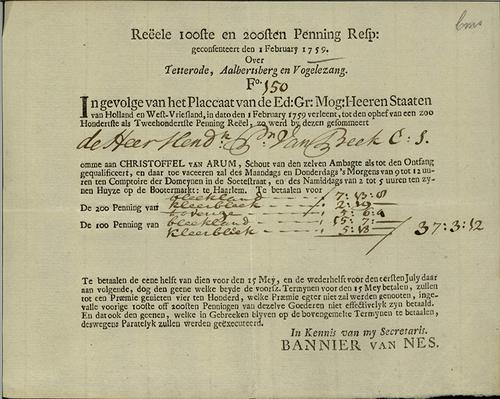 Reëele 100ste en 200sten Penning Resp:
geconsenteert den 1 February 1759.
Over
Tetterode, Aalbertsberg en Vogelezang.
Fo. 150
In gevolge van het Placcaat van de Ed: Gr: Mog: Heeren Staaten
van Holland en West-Vriesland, in dato den 1 February 1759 verleent, tot den ophef van een 200
Honderste als Tweehonderste Penning Reëel, zo werd by dezen gesommeert
de Heer Hendk. Pn. Van Beek C: S.
omme aan CHRISTOFFEL VAN ARUM, Schout van den zelven Ambagte als tot den Ontfang
gequalificeert, en daar toe vaceeren zal des Maandags en Donderdag's Morgens van 9 tot 12 uu-
ren ten Comptoire der Domeynen in de Soetestraat, en des Namiddags van 2 tot 5 uuren ten zy-
nen Huyze op de Bootermarkt: te Haarlem. Te betaalen voor
bleekland 7: 13: 8
De 200 Penning van kleerbleek
De 100 Penning van bleekland 15: 7:
kleerbleek 5: 18
37: 3: 12
Te betaalen de eene helft van dien voor den 15 Mey, en de wederhelft voor den eersten July daar
aan volgende, dog den geene welke beyde de voorsz. Termynen voor den 15 Mey betalen, zullen
tot een Præmie genieten vier ten Honderd, welke Præmie egter niet zal werden genooten, inge-
valle voorige 100ste off 200sten Penningen van dezelve Goederen niet effectivelyk zyn betaald.
En dat ook den geenen, welke in Gebreeken blyven op de bovengemelte Termynen te betaalen,
deswegens Paratelyk zullen werden geëxecuteerd.
In Kennis van my Secretaris.
BANNIER VAN NES.